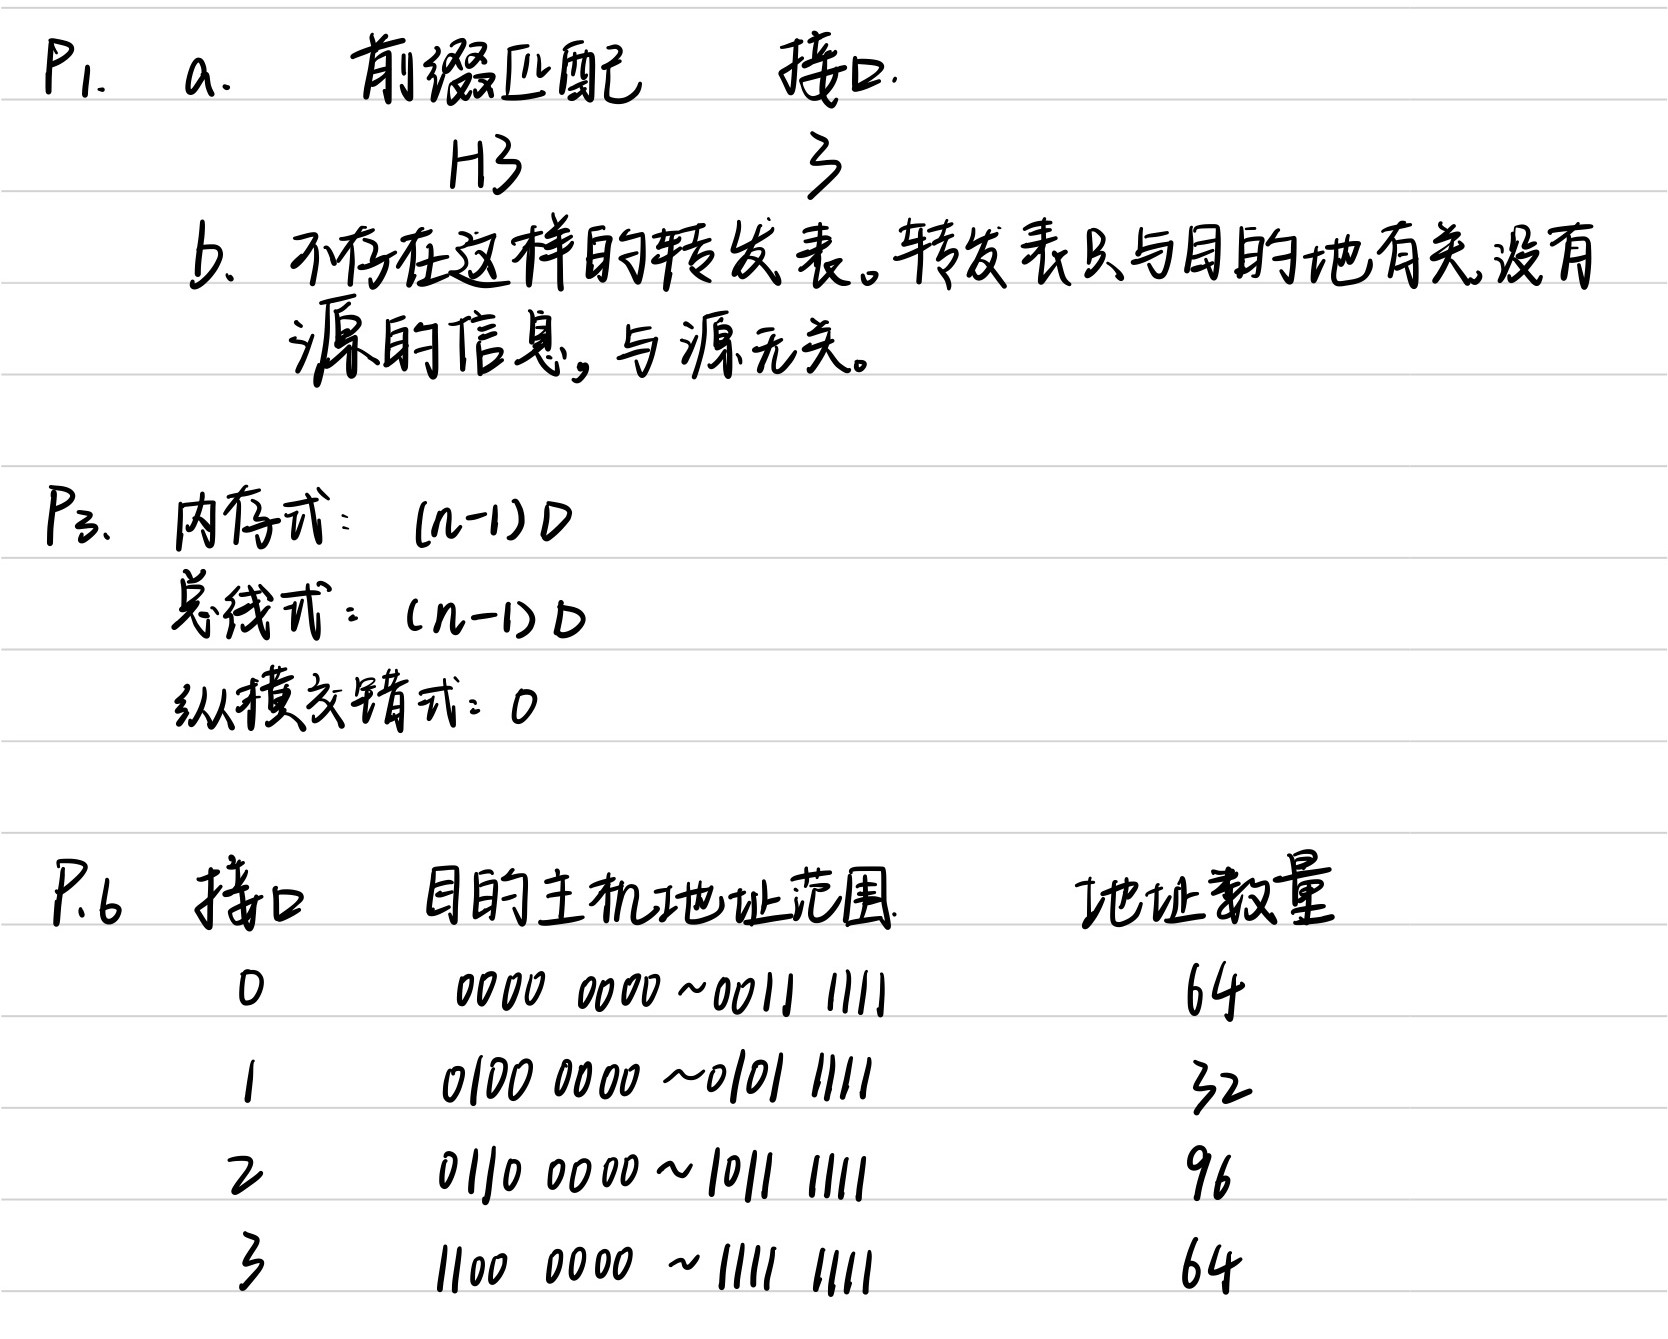 P1. a. 前缀匹配 接口.
H3 3
b. 不存在这样的转发表。转发表只与目的地有关,没有
源的信息,与源无关。
P3. 内存式: (n-1)D
总线式: (n-1)D
纵横交错式: 0
P.6 接口 目的主机地址范围. 地址数量
0 0000 0000 ~ 0011 1111 64
1 0100 0000 ~ 0101 1111 32
2 0110 0000 ~ 1011 1111 96
3 1100 0000 ~ 1111 1111 64